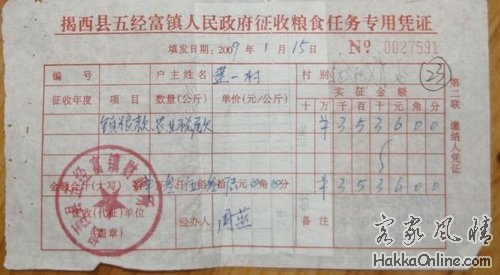 揭西县五经富镇人民政府征收粮食任务专用凭证
填发日期：2009年1月15日 № 0037591
编号 户主姓名 村别
23
征收年度 项目 数量(公斤) 单价(元/公斤) 实征金额
十万千百十元角分
镇粮款、农业税款 ¥353600
金额(大写) ¥叁仟伍佰叁拾陆元0角0分 ¥353600
征收(代征)单位 经办人 备注
(盖章)
第二联 缴纳人凭证
揭西县五经富镇财政所
客家风情
HakkaOnline.com